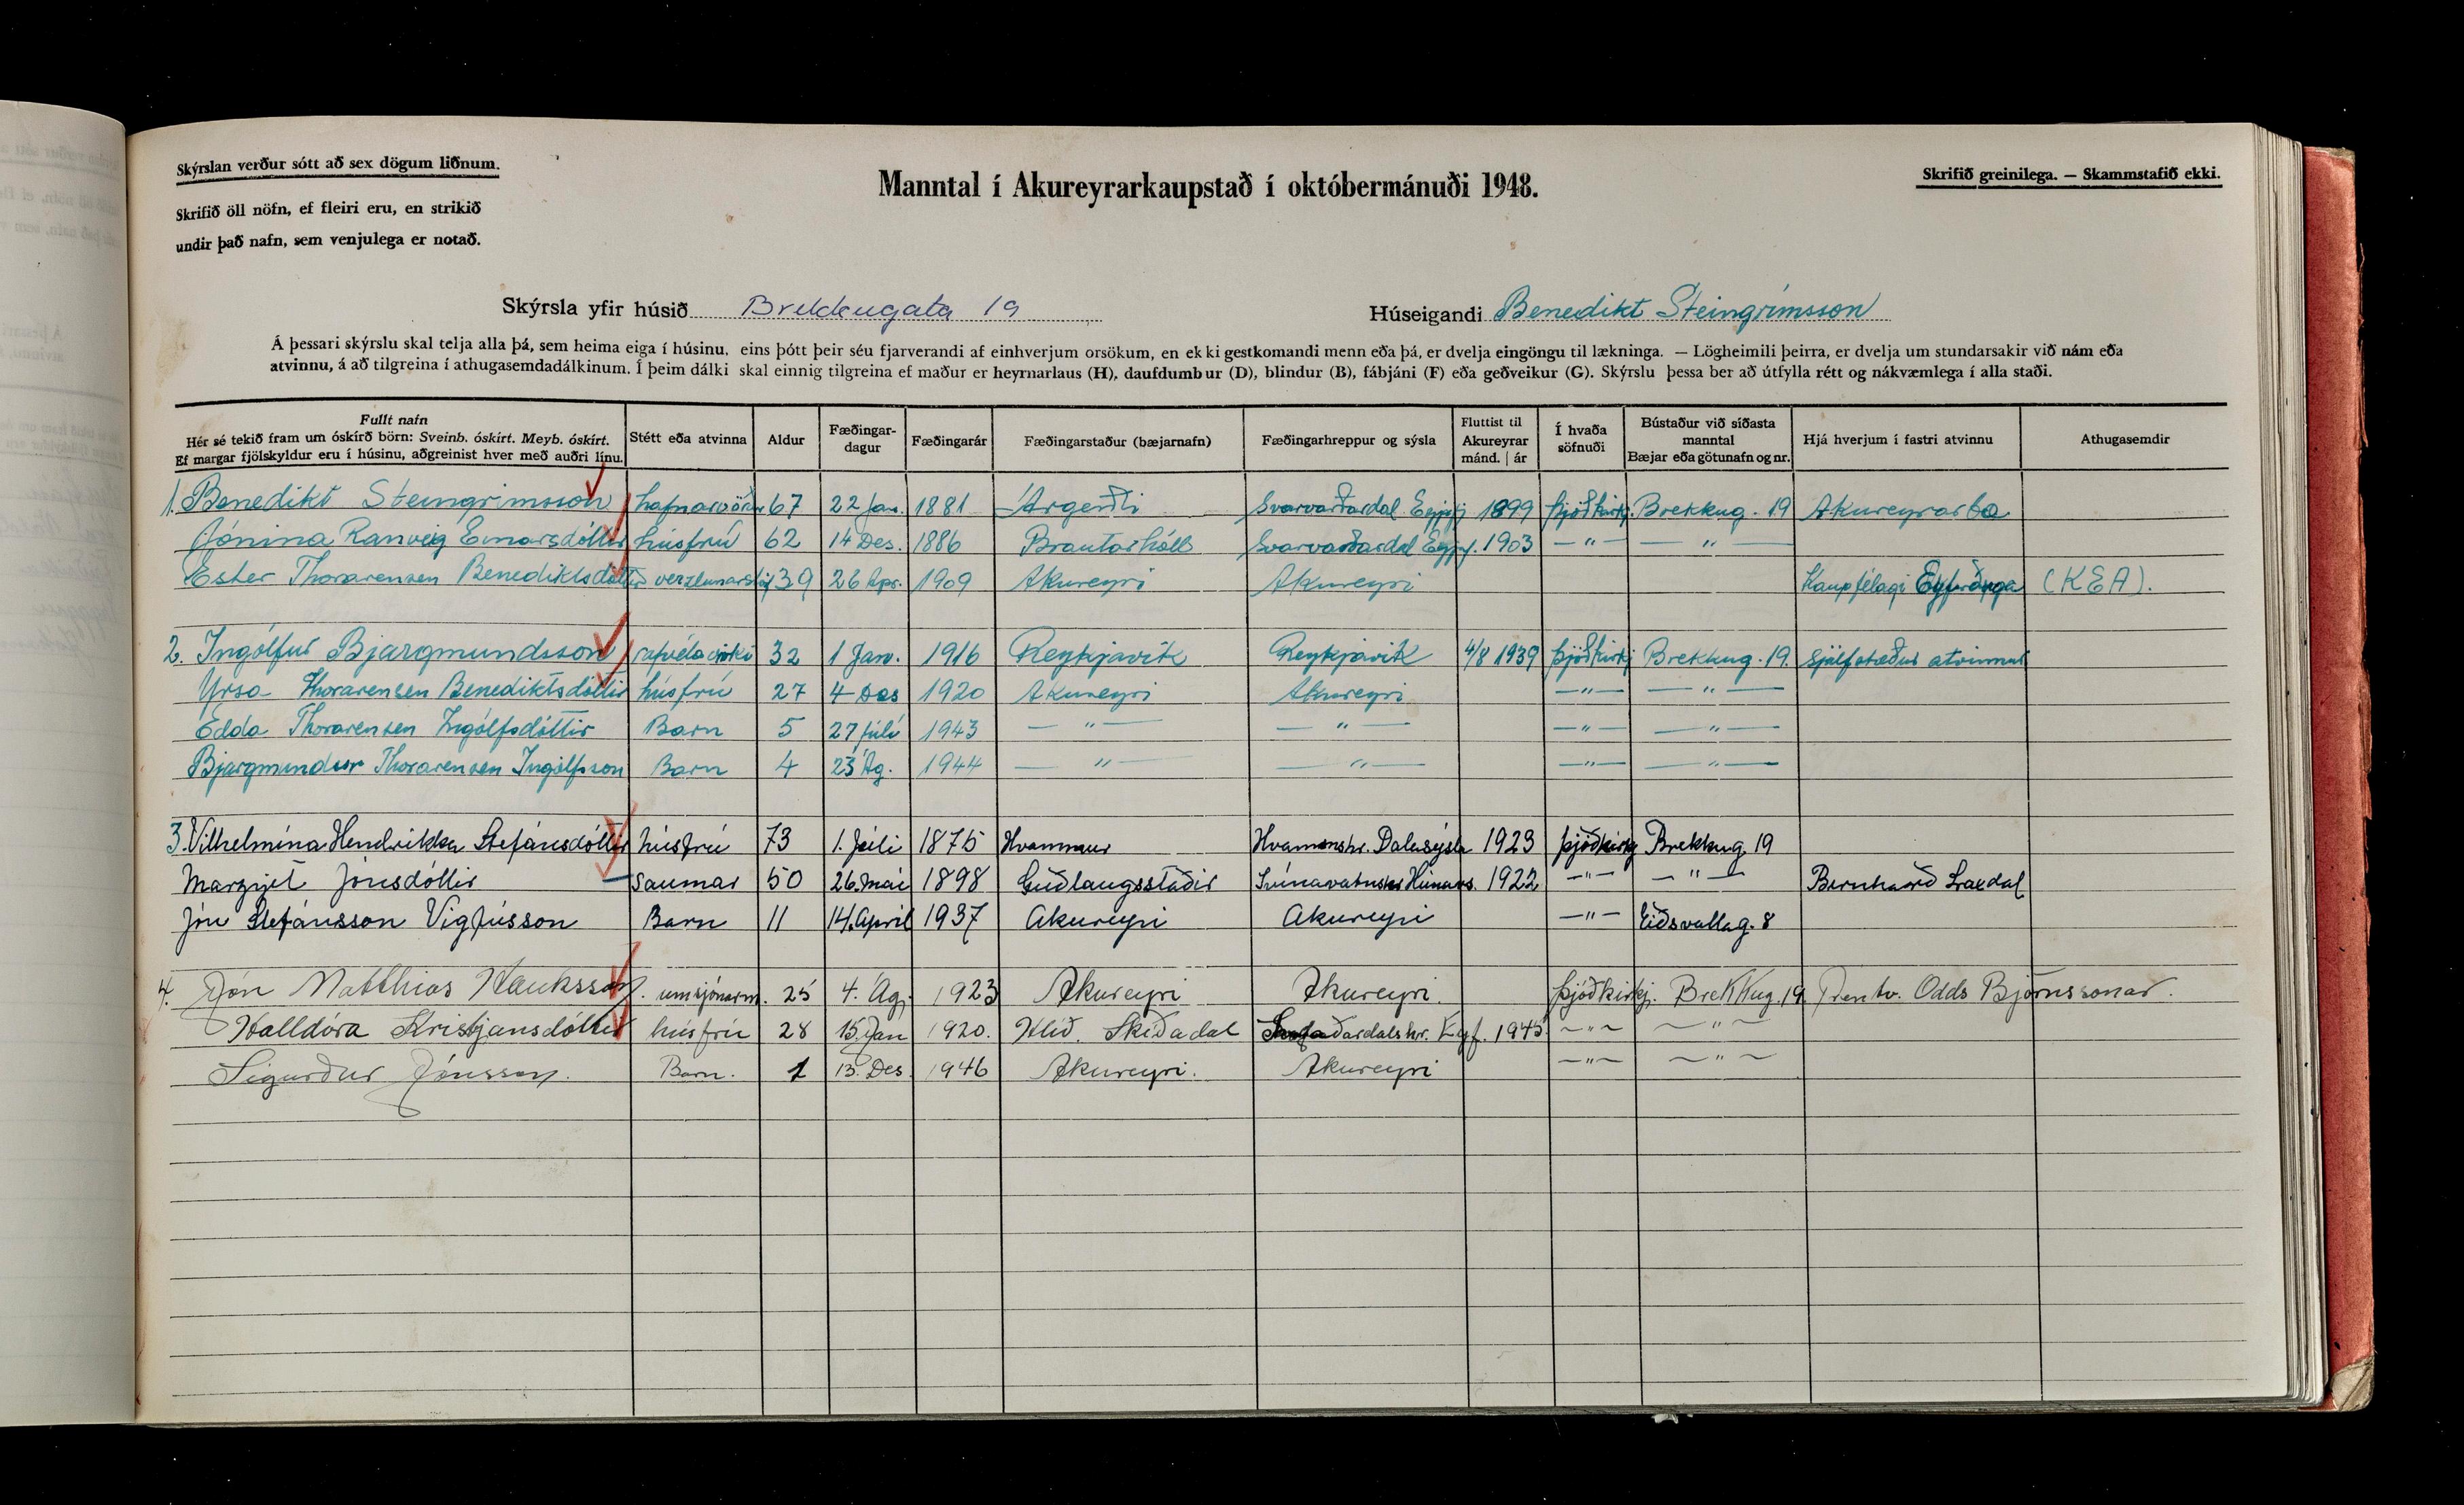 Skýrslan verður sótt að sex dögum liðnum.
Skrifið öll nöfn, ef fleiri eru, en strikið
undir það nafn, sem venjulega er notað.
Manntal í Akureyrarkaupstað í októbermánuði 1948.
Skrifið greinilega. — Skammstafið ekki.
Skýrsla yfir húsið Brekkugata 19
Húseigandi Benedikt Steingrímsson
Á þessari skýrslu skal telja alla þá, sem heima eiga í húsinu, eins þótt þeir séu fjarverandi af einhverjum orsökum, en ekki gestkomandi menn eða þá, er dvelja eingöngu til lækninga. — Lögheimili þeirra, er dvelja um stundarsakir við nám eða
atvinnu, á að tilgreina í athugasemdadálkinum. Í þeim dálki skal einnig tilgreina ef maður er heyrnarlaus (H), daufdumbur (D), blindur (B), fábjáni (F) eða geðveikur (G). Skýrslu þessa ber að útfylla rétt og nákvæmlega í alla staði.
Fullt nafn
Hér sé tekið fram um óskírð börn: Sveinb. óskírt. Meyb. óskírt.
Ef margar fjölskyldur eru í húsinu, aðgreinist hver með auðri línu.
Stétt eða atvinna
Aldur
Fæðingar-
dagur
Fæðingarár
Fæðingarstaður (bæjarnafn)
Fæðingarhreppur og sýsla
Fluttist til
Akureyrar
mánd. | ár
Í hvaða
söfnuði
Bústaður við síðasta
manntal
Bæjar eða götunafn og nr.
Hjá hverjum í fastri atvinnu
Athugasemdir
1. Benedikt Steingrimsson hafnarvörður 67 22 Jan. 1881 Árgerði Svarvarðardal Eyjfj 1899 þjóðkirkj. Brekkug. 19 Akureyrarbæ
Jónína Ranveig Einarsdóttir húsfrú 62 14 Des. 1886 Brautarhóll Svarvarðardal Eyjf. 1903 — " — — " —
Ester Thorarensen Benediktsdóttir verzlunarstúl 39 26 Apr. 1909 Akureyri Akureyri Kaupfélagi Eyfirðinga (KEA).
2. Ingólfur Bjargmundsson rafvélavirki 32 1 Jan. 1916 Reykjavík Reykjavík 4/8 1939 þjóðkirkj Brekkug. 19. Sjálfstæður atvinnur
Yrsa Thorarensen Benediktsdóttir húsfrú 27 4 Des 1920 Akureyri Akureyri — " — — " —
Edda Thorarensen Ingólfsdóttir Barn 5 27 júlí 1943 — " — — " — — " — — " —
Bjargmundur Thorarensen Ingólfsson Barn 4 23 Ág. 1944 — " — — " — — " — — " —
3. Vilhelmína Hendrikka Stefánsdóttir húsfrú 73 1. Júli 1875 Hvammur Hvammshr. Dalasýsla 1923 þjóðkirkj Brekkug. 19
Margrjet Jónsdóttir saumar 50 26. maí 1898 Guðlaugsstaðir Svínavatnshr Húnavs. 1922 — " — — " — Bernharð Laxdal
Jón Stefánsson Vigfússon Barn 11 14. Apríl 1937 Akureyri Akureyri — " — Eiðsvallag. 8
4. Jón Matthias Hauksson umsjónarm. 25 4. Ág. 1923 Akureyri Akureyri. Þjóðkirkj. Brekkug. 19 Prentv. Odds Björnssonar.
Halldóra Kristjansdóttir húsfrú 28 15. Jan 1920. Hlíð. Skíðadal Svafaðardalshr. Eyf. 1945 — " — — " —
Sigurður Jónsson. Barn. 1 13. Des. 1946 Akureyri. Akureyri — " — — " —